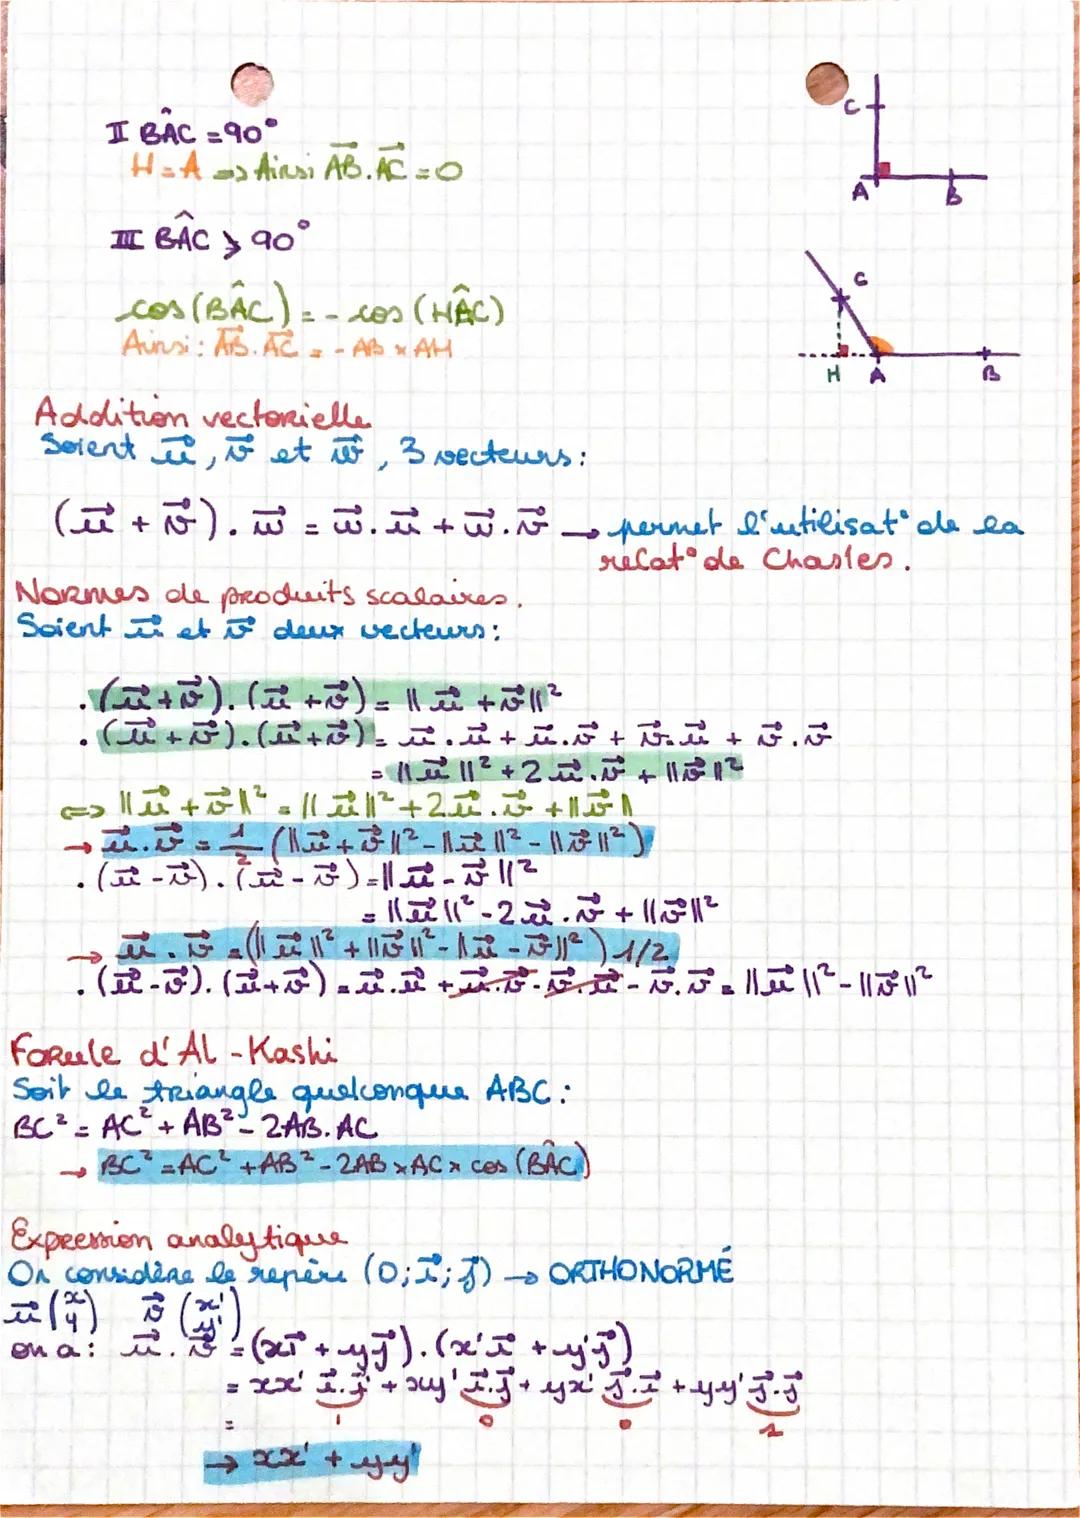 II BÂC = 90°
H = A => Ainsi AB⃗.AC⃗ = 0
C
A
B
III BÂC > 90°
cos(BÂC) = - cos (HÂC)
Ainsi : AB⃗.AC⃗ = - AB × AH
C
H
A
B
Addition vectorielle
Soient u⃗, v⃗ et w⃗, 3 vecteurs :
(u⃗ + v⃗). w⃗ = w⃗.u⃗ + w⃗.v⃗ → permet l'utilisat° de la
relat° de Chasles.
Normes de produits scalaires.
Soient u⃗ et v⃗ deux vecteurs :
. (u⃗+v⃗).(u⃗+v⃗) = ||u⃗+v⃗||²
. (u⃗+v⃗).(u⃗+v⃗) = u⃗.u⃗ + u⃗.v⃗ + v⃗.u⃗ + v⃗.v⃗
= ||u⃗||² + 2u⃗.v⃗ + ||v⃗||²
<=> ||u⃗+v⃗||² = ||u⃗||² + 2u⃗.v⃗ + ||v⃗||
→ u⃗.v⃗ = 1/2 (||u⃗+v⃗||² - ||u⃗||² - ||v⃗||²)
. (u⃗-v⃗).(u⃗-v⃗) = ||u⃗-v⃗||²
= ||u⃗||² - 2u⃗.v⃗ + ||v⃗||²
→ u⃗.v⃗ = (||u⃗||² + ||v⃗||² - ||u⃗-v⃗||²) 1/2
. (u⃗-v⃗).(u⃗+v⃗) = u⃗.u⃗ + u⃗.v⃗ - v⃗.u⃗ - v⃗.v⃗ = ||u⃗||² - ||v⃗||²
Forule d'Al-Kashi
Soit le triangle quelconque ABC :
BC² = AC² + AB² - 2AB.AC
→ BC² = AC² + AB² - 2AB × AC × cos (BÂC)
Expression analytique
On considère le repère (O; i⃗; j⃗) → ORTHONORMÉ
u⃗ (x y) v⃗ (x' y')
on a : u⃗.v⃗ = (xi⃗ + yj⃗).(x'i⃗ + y'j⃗)
= xx' i⃗.j⃗ + xy' i⃗.j⃗ + yx' j⃗.i⃗ + yy' j⃗.j⃗
= 1 0 0 1
→ xx' + yy'